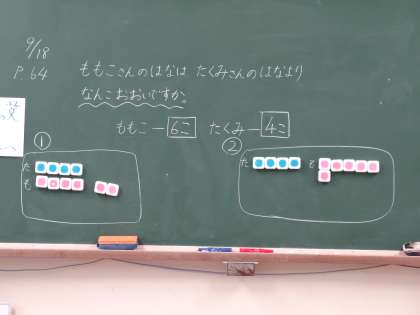 9/18
P.64
ももこさんのはなは たくみさんのはなより
なんこおおいですか。
ももこ― 6こ たくみ― 4こ
①
た
も
②
た
も